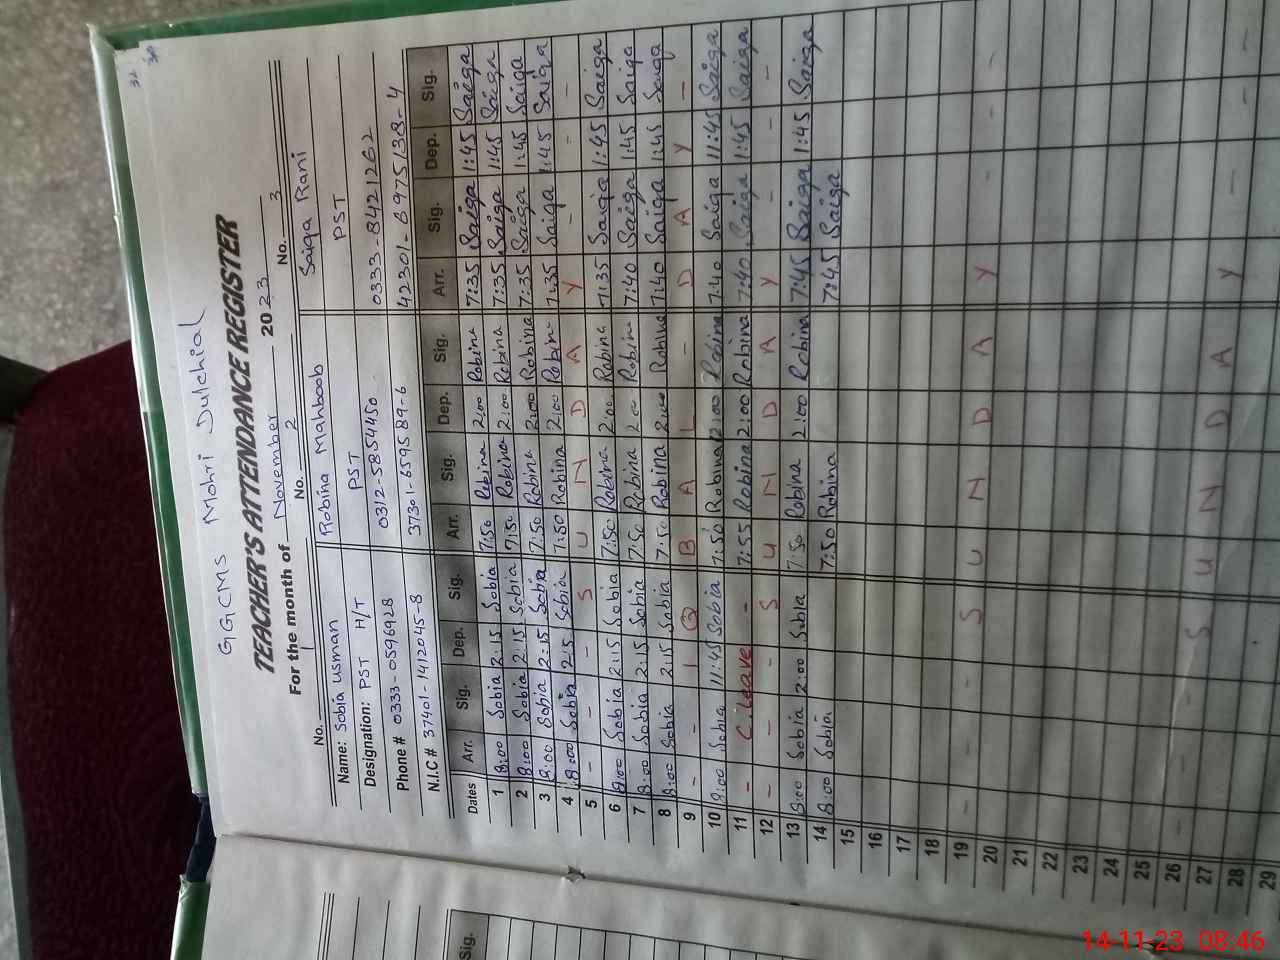 32
30
GGCMS Mohri Dulchial
TEACHER'S ATTENDANCE REGISTER
For the month of November 2023
No. 1 No. 2 No. 3
Name: Sobia Usman Robina Mahboob Saiqa Rani
Designation: PST H/T PST PST
Phone # 0333-0596928 0312-5854450 0333-8421262
N.I.C # 37401-1412045-8 37301-659589-6 42301-6975138-4
Dates Arr. Sig. Dep. Sig. Arr. Sig. Dep. Sig. Arr. Sig. Dep. Sig.
1 8:00 Sobia 2:15 Sobia 7:50 Robina 2:00 Robina 7:35 Saiqa 1:45 Saiqa
2 8:00 Sobia 2:15 Sobia 7:50 Robina 2:00 Robina 7:35 Saiqa 1:45 Saiqa
3 8:00 Sobia 2:15 Sobia 7:50 Robina 2:00 Robina 7:35 Saiqa 1:45 Saiqa
4 8:00 Sobia 2:15 Sobia 7:50 Robina 2:00 Robina 7:35 Saiqa 1:45 Saiqa
5 - - - S U N D A Y - - -
6 8:00 Sobia 2:15 Sobia 7:50 Robina 2:00 Robina 7:35 Saiqa 1:45 Saiqa
7 8:00 Sobia 2:15 Sobia 7:50 Robina 2:00 Robina 7:40 Saiqa 1:45 Saiqa
8 8:00 Sobia 2:15 Sobia 7:50 Robina 2:00 Robina 7:40 Saiqa 1:45 Saiqa
9 - - I Q B A L - D A Y -
10 8:00 Sobia 11:45 Sobia 7:50 Robina 12:00 Robina 7:40 Saiqa 11:45 Saiqa
11 - C.leave - 7:55 Robina 2:00 Robina 7:40 Saiqa 1:45 Saiqa
12 - - - S U N D A Y - - -
13 8:00 Sobia 2:00 Sobia 7:50 Robina 2:00 Robina 7:45 Saiqa 1:45 Saiqa
14 8:00 Sobia 7:50 Robina 7:45 Saiqa
15
16
17
18
19 - - - S U N D A Y - - -
20
21
22
23
24
25
26 - - - S U N D A Y - - -
27
28
29
Sig.
14-11-23 08:46